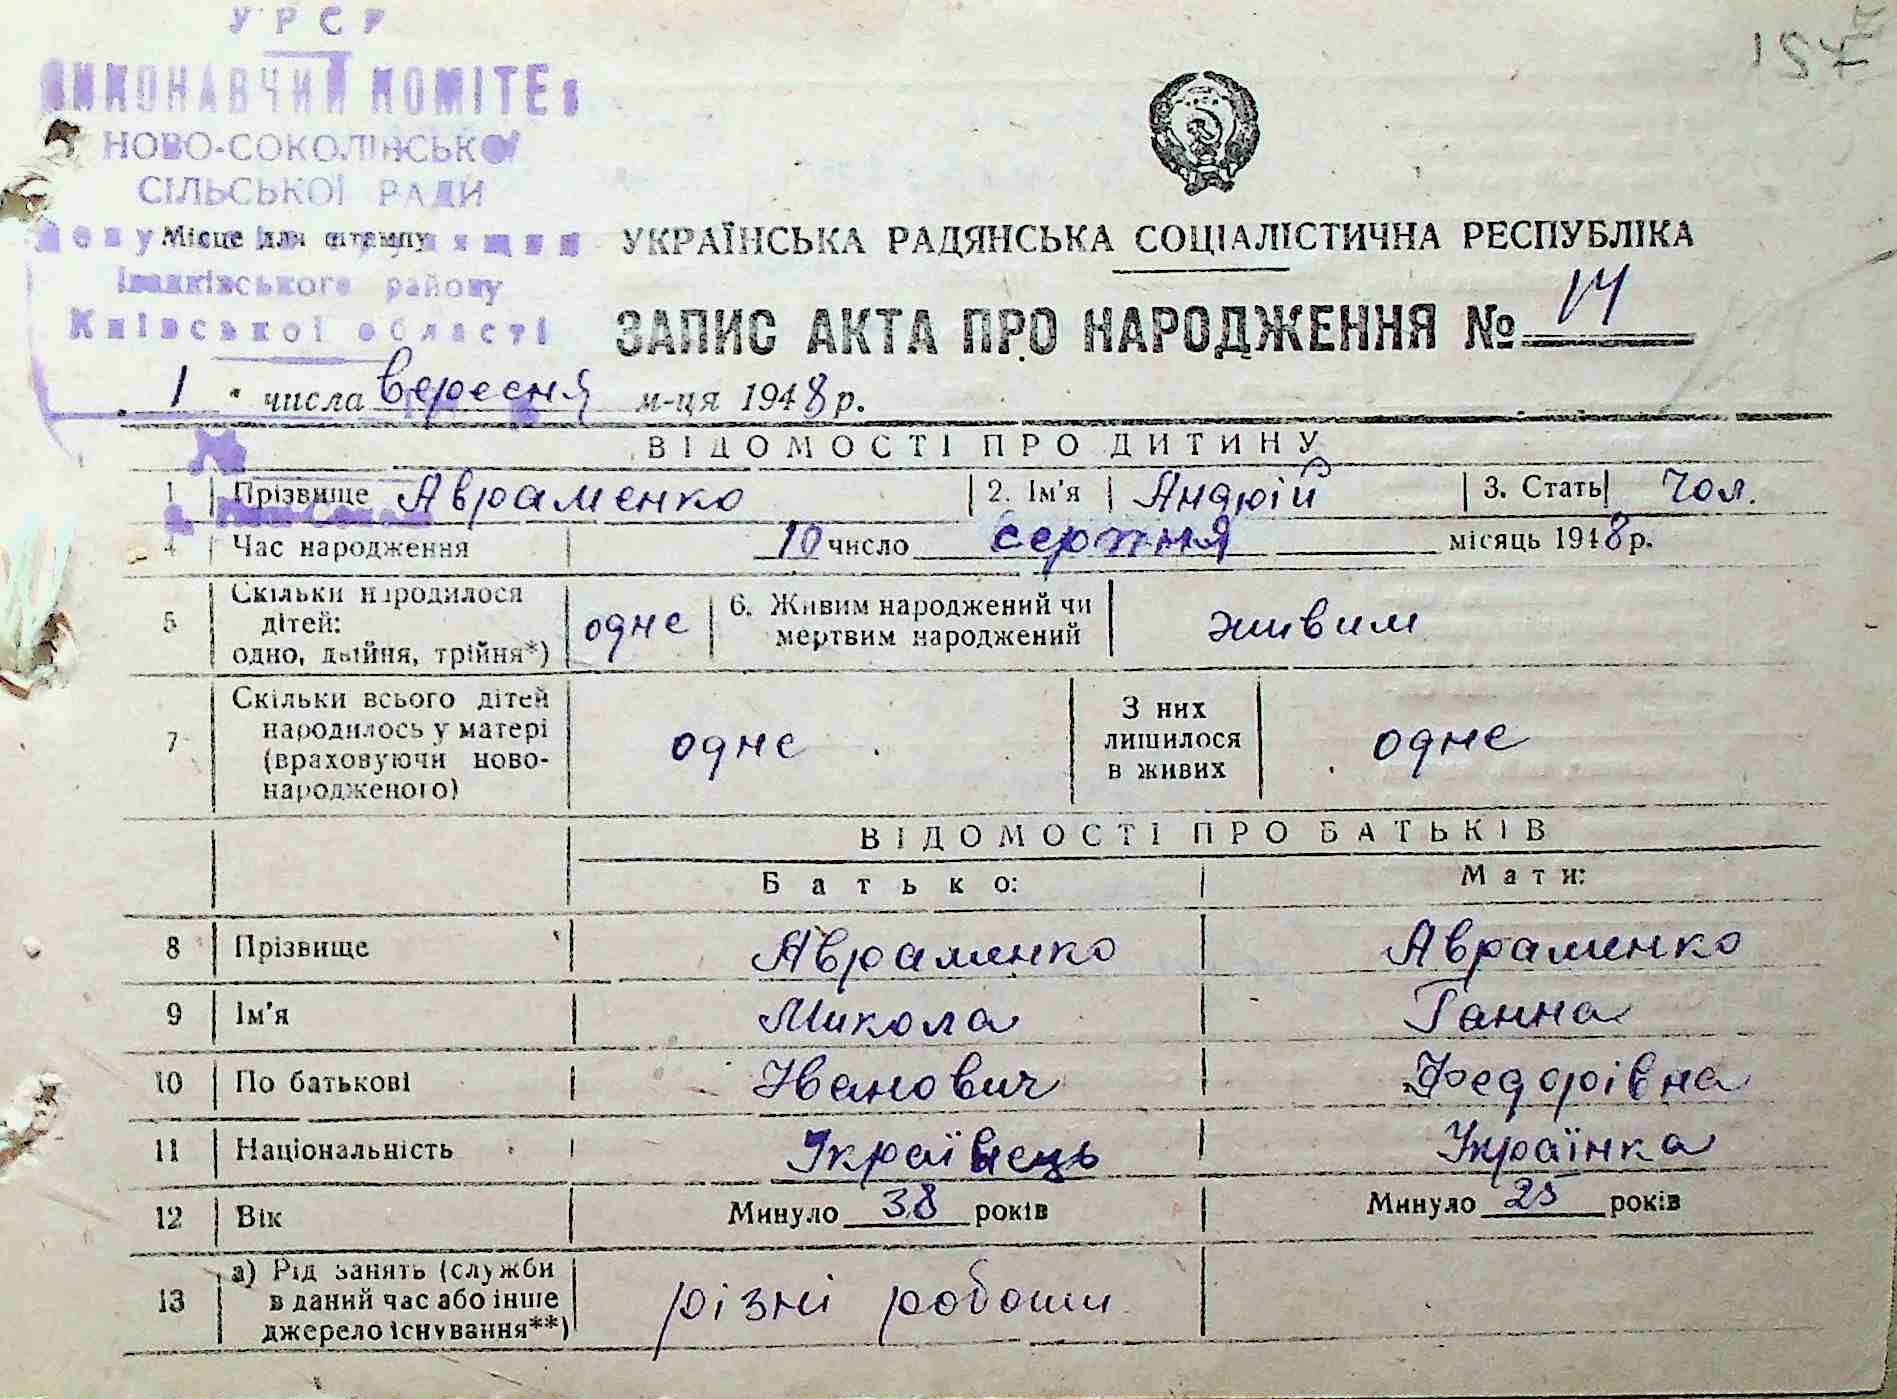 УРСР
ВИКОНАВЧИЙ КОМІТЕТ
НОВО-СОКОЛІНСЬКОЇ
СІЛЬСЬКОЇ РАДИ
Місце для штампу
Іванківського району
Київської області
157
УКРАЇНСЬКА РАДЯНСЬКА СОЦІАЛІСТИЧНА РЕСПУБЛІКА
ЗАПИС АКТА ПРО НАРОДЖЕННЯ № 14
1 " числа вересня м-ця 1948 р.
ВІДОМОСТІ ПРО ДИТИНУ
1 Прізвище Авраменко 2. Ім'я Андрій 3. Стать Чол.
4 Час народження 10 число серпня місяць 1948 р.
5 Скільки народилося дітей: одно, двійня, трійня*) одне 6. Живим народжений чи мертвим народжений живим
7 Скільки всього дітей народилось у матері (враховуючи ново-народженого) одне З них лишилося в живих одне
ВІДОМОСТІ ПРО БАТЬКІВ
Батько: Мати:
8 Прізвище Авраменко Авраменко
9 Ім'я Микола Ганна
10 По батькові Іванович Федорівна
11 Національність Українець Українка
12 Вік Минуло 38 років Минуло 25 років
13 а) Рід занять (служби в даний час або інше джерело існування**) різні роботи